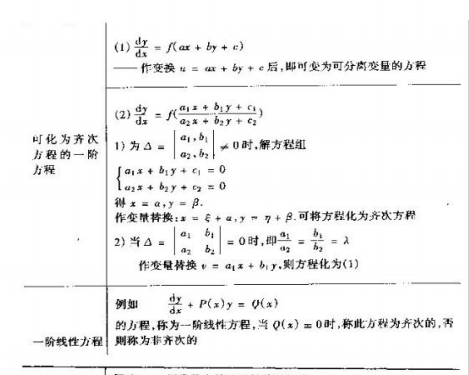 (1) dy/dx = f(ax + by + c)
—— 作变换 u = ax + by + c 后,即可变为可分离变量的方程
(2) dy/dx = f((a₁x + b₁y + c₁)/(a₂x + b₂y + c₂))
可化为齐次
方程的一阶
方程
1) 为 Δ = |a₁, b₁; a₂, b₂| ≠ 0 时,解方程组
{a₁x + b₁y + c₁ = 0
a₂x + b₂y + c₂ = 0
得 x = α, y = β.
作变量替换: x = ξ + α, y = η + β. 可将方程化为齐次方程
2) 当 Δ = |a₁ b₁; a₂ b₂| = 0 时,即 a₁/a₂ = b₁/b₂ = λ
作变量替换 v = a₁x + b₁y,则方程化为(1)
一阶线性方程
例如 dy/dx + P(x)y = Q(x)
的方程,称为一阶线性方程,当 Q(x) ≡ 0时,称此方程为齐次的,否
则称为非齐次的